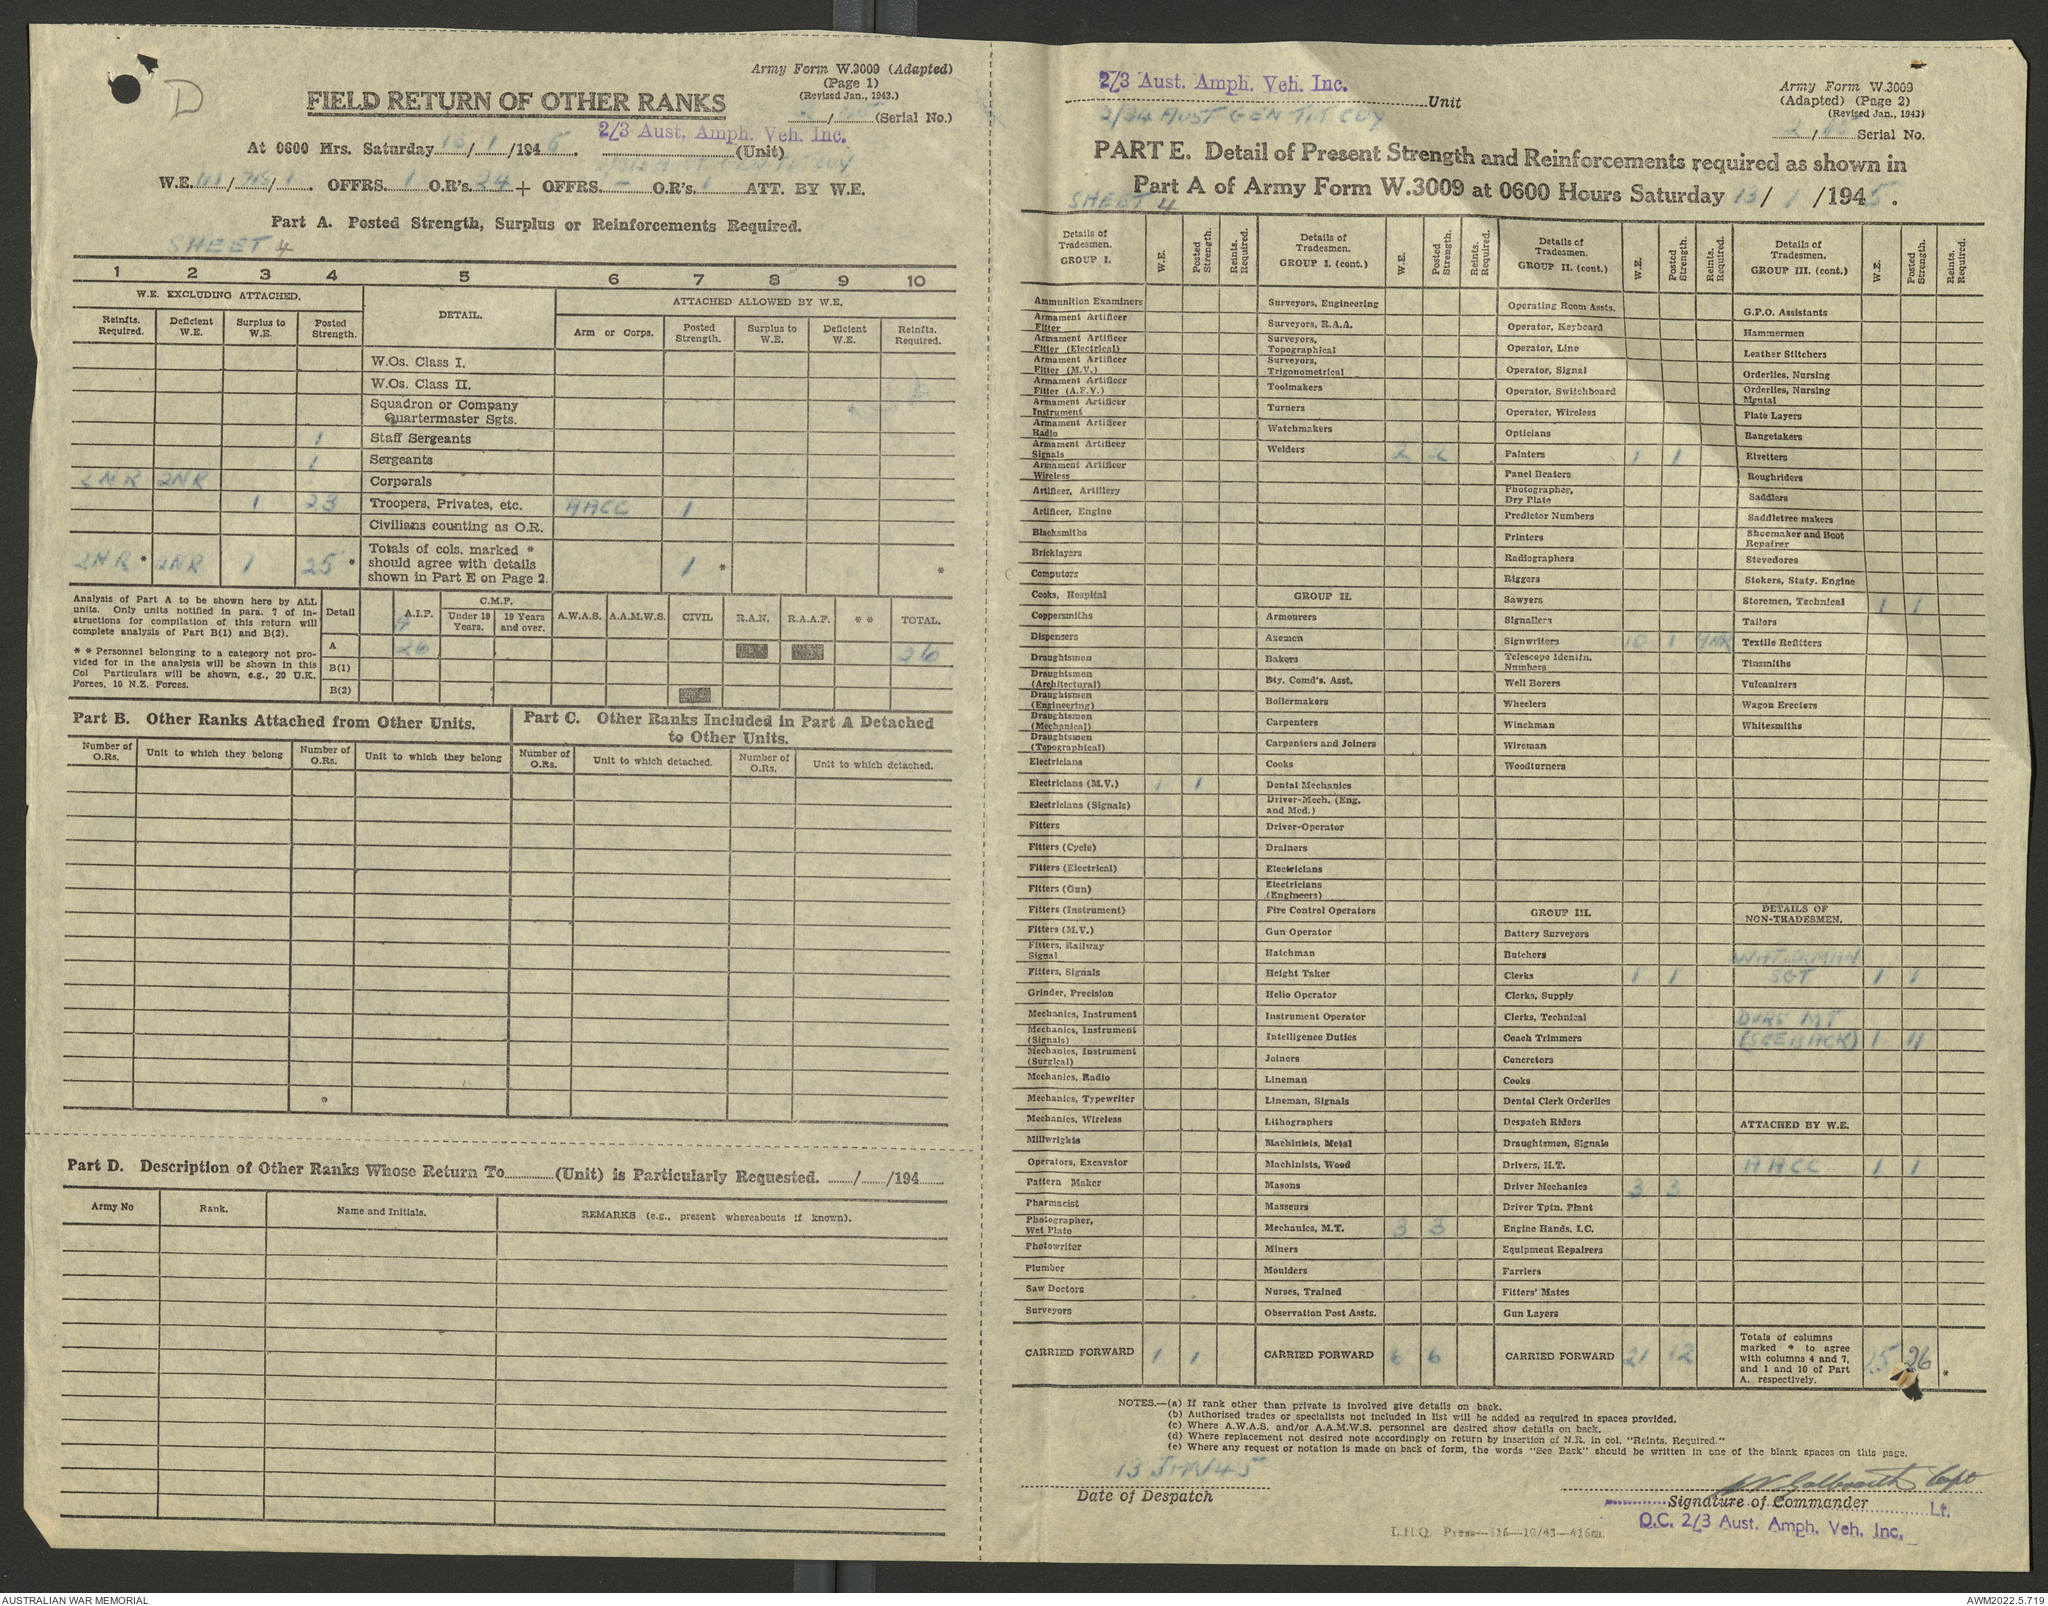 D
Army Form W.3009 (Adapted)
(Page 1)
(Revised Jan., 1943.)
FIELD RETURN OF OTHER RANKS
/ (Serial No.)
2/3 Aust. Amph. Veh. Inc.
At 0600 Hrs. Saturday 13/1/1945. (Unit)
W.E. / / . OFFRS. 1 O.R's. 24 + OFFRS. - O.R's. 1 ATT. BY W.E.
Part A. Posted Strength, Surplus or Reinforcements Required.
SHEET 4
1 2 3 4 5 6 7 8 9 10
W.E. EXCLUDING ATTACHED. DETAIL. ATTACHED ALLOWED BY W.E.
Reinfts. Required. Deficient W.E. Surplus to W.E. Posted Strength. Arm or Corps. Posted Strength. Surplus to W.E. Deficient W.E. Reinfts. Required.
W.Os. Class I.
W.Os. Class II.
Squadron or Company
Quartermaster Sgts.
1 Staff Sergeants
1 Sergeants
2NR 2NR Corporals
1 23 Troopers, Privates, etc. AACC 1
Civilians counting as O.R.
2NR * 2NR 1 25 * Totals of cols. marked * should agree with details shown in Part E on Page 2. 1 * *
Analysis of Part A to be shown here by ALL
units. Only units notified in para. 7 of in-
structions for compilation of this return will
complete analysis of Part B(1) and B(2).
* * Personnel belonging to a category not pro-
vided for in the analysis will be shown in this
Col Particulars will be shown, e.g., 20 U.K.
Forces. 10 N.Z. Forces.
Detail A.I.F. C.M.F. Under 19 Years. 19 Years and over. A.W.A.S. A.A.M.W.S. CIVIL R.A.N. R.A.A.F. * * TOTAL.
A 26 26
B(1)
B(2)
Part B. Other Ranks Attached from Other Units.
Part C. Other Ranks Included in Part A Detached
to Other Units.
Number of O.Rs. Unit to which they belong Number of O.Rs. Unit to which they belong Number of O.Rs. Unit to which detached. Number of O.Rs. Unit to which detached.
Part D. Description of Other Ranks Whose Return To (Unit) is Particularly Requested. / /194
Army No Rank. Name and Initials. REMARKS (e.g., present whereabouts if known).
2/3 Aust. Amph. Veh. Inc.
Unit
2/34 AUST GEN TPT COY
Army Form W.3009
(Adapted) (Page 2)
(Revised Jan., 1943)
2/ Serial No.
PART E. Detail of Present Strength and Reinforcements required as shown in
Part A of Army Form W.3009 at 0600 Hours Saturday 13/1/1945.
SHEET 4
Details of Tradesmen. GROUP I. W.E. Posted Strength. Reints. Required.
Ammunition Examiners
Armament Artificer Fitter
Armament Artificer Fitter (Electrical)
Armament Artificer Fitter (M.V.)
Armament Artificer Fitter (A.F.V.)
Armament Artificer Instrument
Armament Artificer Radio
Armament Artificer Signals
Armament Artificer Wireless
Artificer, Artillery
Artificer, Engine
Blacksmiths
Bricklayers
Computors
Cooks, Hospital
Coppersmiths
Dispensers
Draughtsmen
Draughtsmen (Architectural)
Draughtsmen (Engineering)
Draughtsmen (Mechanical)
Draughtsmen (Topographical)
Electricians
Electricians (M.V.) 1 1
Electricians (Signals)
Fitters
Fitters (Cycle)
Fitters (Electrical)
Fitters (Gun)
Fitters (Instrument)
Fitters (M.V.)
Fitters, Railway Signal
Fitters, Signals
Grinder, Precision
Mechanics, Instrument
Mechanics, Instrument (Signals)
Mechanics, Instrument (Surgical)
Mechanics, Radio
Mechanics, Typewriter
Mechanics, Wireless
Millwrights
Operators, Excavator
Pattern Maker
Pharmacist
Photographer, Wet Plate
Photowriter
Plumber
Saw Doctors
Surveyors
CARRIED FORWARD 1 1
Details of Tradesmen. GROUP I. (cont.) W.E. Posted Strength. Reints. Required.
Surveyors, Engineering
Surveyors, R.A.A.
Surveyors, Topographical
Surveyors, Trigonometrical
Toolmakers
Turners
Watchmakers
Welders 2 2
GROUP II.
Armourers
Axemen
Bakers
Bty. Comd's. Asst.
Boilermakers
Carpenters
Carpenters and Joiners
Cooks
Dental Mechanics
Driver-Mech. (Eng. and Med.)
Driver-Operator
Drainers
Electricians
Electricians (Engineers)
Fire Control Operators
Gun Operator
Hatchman
Height Taker
Helio Operator
Instrument Operator
Intelligence Duties
Joiners
Lineman
Lineman, Signals
Lithographers
Machinists, Metal
Machinists, Wood
Masons
Masseurs
Mechanics, M.T. 3 3
Miners
Moulders
Nurses, Trained
Observation Post Assts.
CARRIED FORWARD 6 6
Details of Tradesmen. GROUP II. (cont.) W.E. Posted Strength. Reints. Required.
Operating Room Assts.
Operator, Keyboard
Operator, Line
Operator, Signal
Operator, Switchboard
Operator, Wireless
Opticians
Painters 1 1
Panel Beaters
Photographer, Dry Plate
Predictor Numbers
Printers
Radiographers
Riggers
Sawyers
Signallers
Signwriters 10 1
Telescope Identn. Numbers
Well Borers
Wheelers
Winchman
Wireman
Woodturners
GROUP III.
Battery Surveyors
Butchers
Clerks 1 1
Clerks, Supply
Clerks, Technical
Coach Trimmers
Concretors
Cooks
Dental Clerk Orderlies
Despatch Riders
Draughtsmen, Signals
Drivers, H.T.
Driver Mechanics 3 3
Driver Tptn. Plant
Engine Hands, I.C.
Equipment Repairers
Farriers
Fitters' Mates
Gun Layers
CARRIED FORWARD 21 12
Details of Tradesmen. GROUP III. (cont.) W.E. Posted Strength. Reints. Required.
G.P.O. Assistants
Hammermen
Leather Stitchers
Orderlies, Nursing
Orderlies, Nursing Mental
Plate Layers
Rangetakers
Rivetters
Roughriders
Saddlers
Saddletree makers
Shoemaker and Boot Repairer
Stevedores
Stokers, Staty. Engine
Storemen, Technical 1 1
Tailors
Textile Refitters
Tinsmiths
Vulcanizers
Wagon Erectors
Whitesmiths
DETAILS OF NON-TRADESMEN.
WATERMAN
SGT 1 1
DVRS MT
(SEE BACK) 1 11
ATTACHED BY W.E.
AACC 1 1
Totals of columns marked * to agree with columns 4 and 7, and 1 and 10 of Part A. respectively. 25 26 *
NOTES.—(a) If rank other than private is involved give details on back.
(b) Authorised trades or specialists not included in list will be added as required in spaces provided.
(c) Where A.W.A.S. and/or A.A.M.W.S. personnel are desired show details on back.
(d) Where replacement not desired note accordingly on return by insertion of N.R. in col. "Reints. Required."
(e) Where any request or notation is made on back of form, the words "See Back" should be written in one of the blank spaces on this page.
13 JAN 45
Date of Despatch
Galbraith Capt
Signature of Commander Lt.
O.C. 2/3 Aust. Amph. Veh. Inc.
L.H.Q. Press—816—10/43—416m.
AUSTRALIAN WAR MEMORIAL
AWM2022.5.719